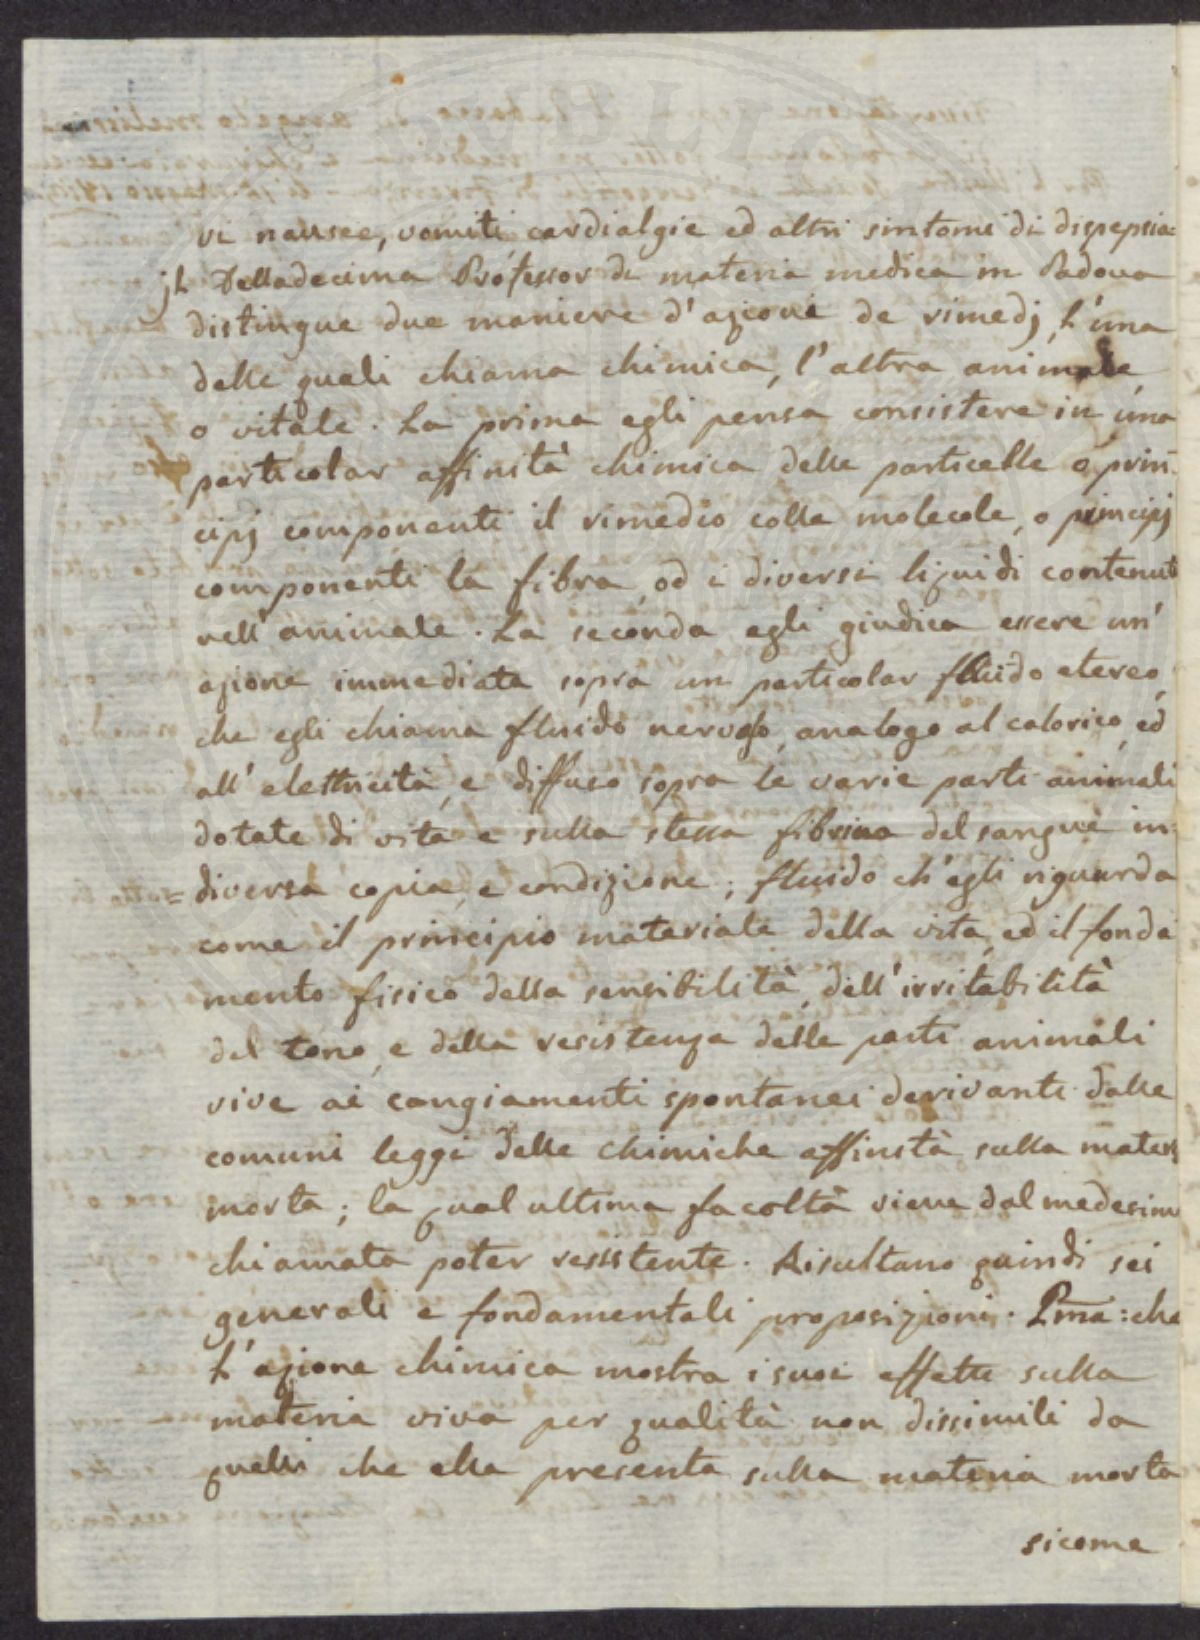 vi nausee, vomiti cardialgie ed altri sintomi di dispepsia:
jl Delladecima Professor di materia medica in Padova
distingue due maniere d'azioni de rimedj, l'una
delle quali chiama chimica, l'altra animale
o vitale. La prima egli pensa consistere in una
particolar affinità chimica delle particelle o prin-
cipj componenti il rimedio colle molecole, o principj
componenti la fibra, od i diversi liquidi contenuti
nell'animale. La seconda egli giudica essere un'
azione immediata sopra un particolar fluido etereo,
che egli chiama fluido nervoso, analogo al calorico, ed
all'elettricità, e diffuso sopra le varie parti animali
dotate di vita e sulla stessa fibrina del sangue in-
=diversa copia, e condizione; fluido ch'egli riguarda
come il principio materiale della vita, ed il fonda
mento fisico della sensibilità, dell'irritabilità
del tono, e della resistenza delle parti animali
vive ai cangiamenti spontanei derivanti dalle
comuni leggi delle chimiche affinità sulla materia
morta; la qual ultima facoltà viene dal medesimo
chiamata poter resistente. Risultano quindi sei
generali e fondamentali proposizioni. Pma: che
l'azione chimica mostra i suoi effetti sulla
materia viva per qualità non dissimili da
quelli che ella presenta sulla materia morta
sicome
PVBLIC